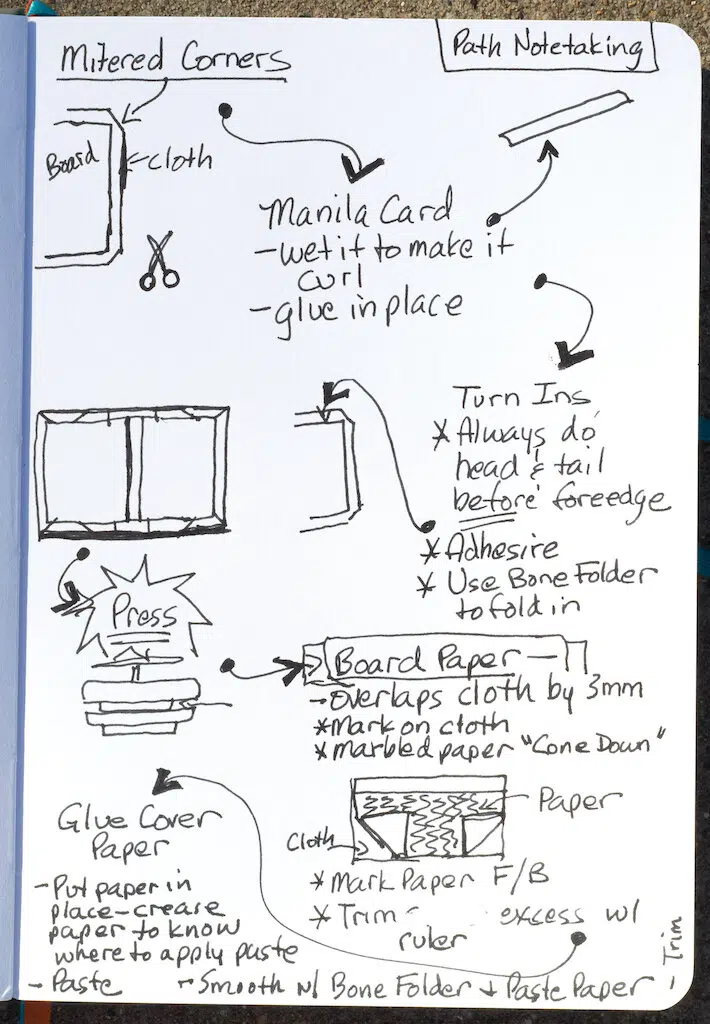 Path Notetaking
Mitered Corners
Board
cloth
Manila Card
- wet it to make it
curl
- glue in place
Turn Ins
* Always do
head & tail
before foreedge
* Adhesire
* Use Bone Folder
to fold in
Press
Board Paper -
- overlaps cloth by 3mm
* Mark on cloth
* marbled paper "Cone Down"
Paper
Cloth
* Mark Paper F/B
* Trim excess w/
ruler
Glue Cover
Paper
- Put paper in
place-crease
paper to know
where to apply paste
- Paste - Smooth w/ Bone Folder + Paste Paper - Trim